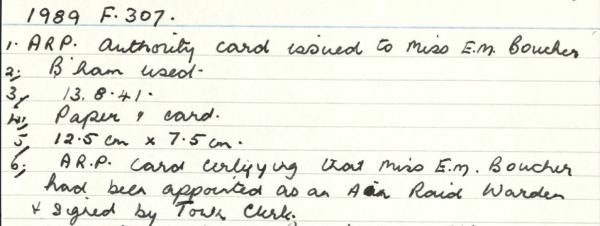 1989 F.307.
1. A.R.P. Authority card issued to Miss E.M. Boucher
2, B'ham used.
3, 13.8.41.
4, Paper & card.
5, 12.5 cm x 7.5 cm.
6, A.R.P. Card certifying that Miss E.M. Boucher
had been appointed as an Air Raid Warden
& signed by Town Clerk.